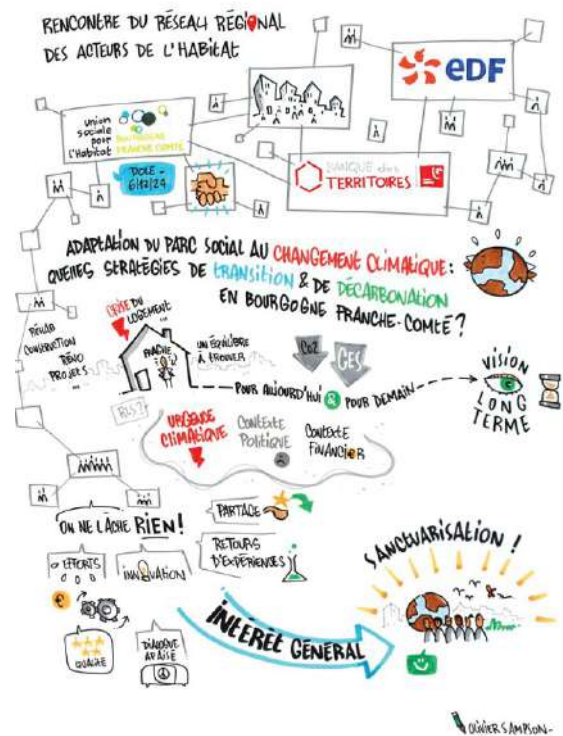 RENCONTRE DU RÉSEAU RÉGIONAL
DES ACTEURS DE L'HABITAT
eDF
union
sociale
pour
l'habitat
BOURGOGNE
FRANCHE-COMTÉ
DOLE -
6/12/24
BANQUE des
TERRITOIRES
ADAPTATION DU PARC SOCIAL AU CHANGEMENT CLIMATIQUE :
QUELLES STRATÉGIES DE TRANSITION & DE DÉCARBONATION
EN BOURGOGNE FRANCHE-COMTÉ ?
CRISE DU
LOGEMENT
RÉHAB
CONSTRUCTION
RÉNO
PROJETS...
UN ÉQUILIBRE
À TROUVER
CO2
GES
POUR AUJOURD'HUI & POUR DEMAIN
VISION
LONG
TERME
RLS?
URGENCE
CLIMATIQUE
CONTEXTE
POLITIQUE
CONTEXTE
FINANCIER
ON NE LÂCHE RIEN!
PARTAGE
RETOURS
D'EXPÉRIENCES
EFFORTS
INNOVATION
QUALITÉ
DIALOGUE
APAISÉ
INTÉRÊT GÉNÉRAL
SANCTUARISATION !
OLIVIER SAMPSON-